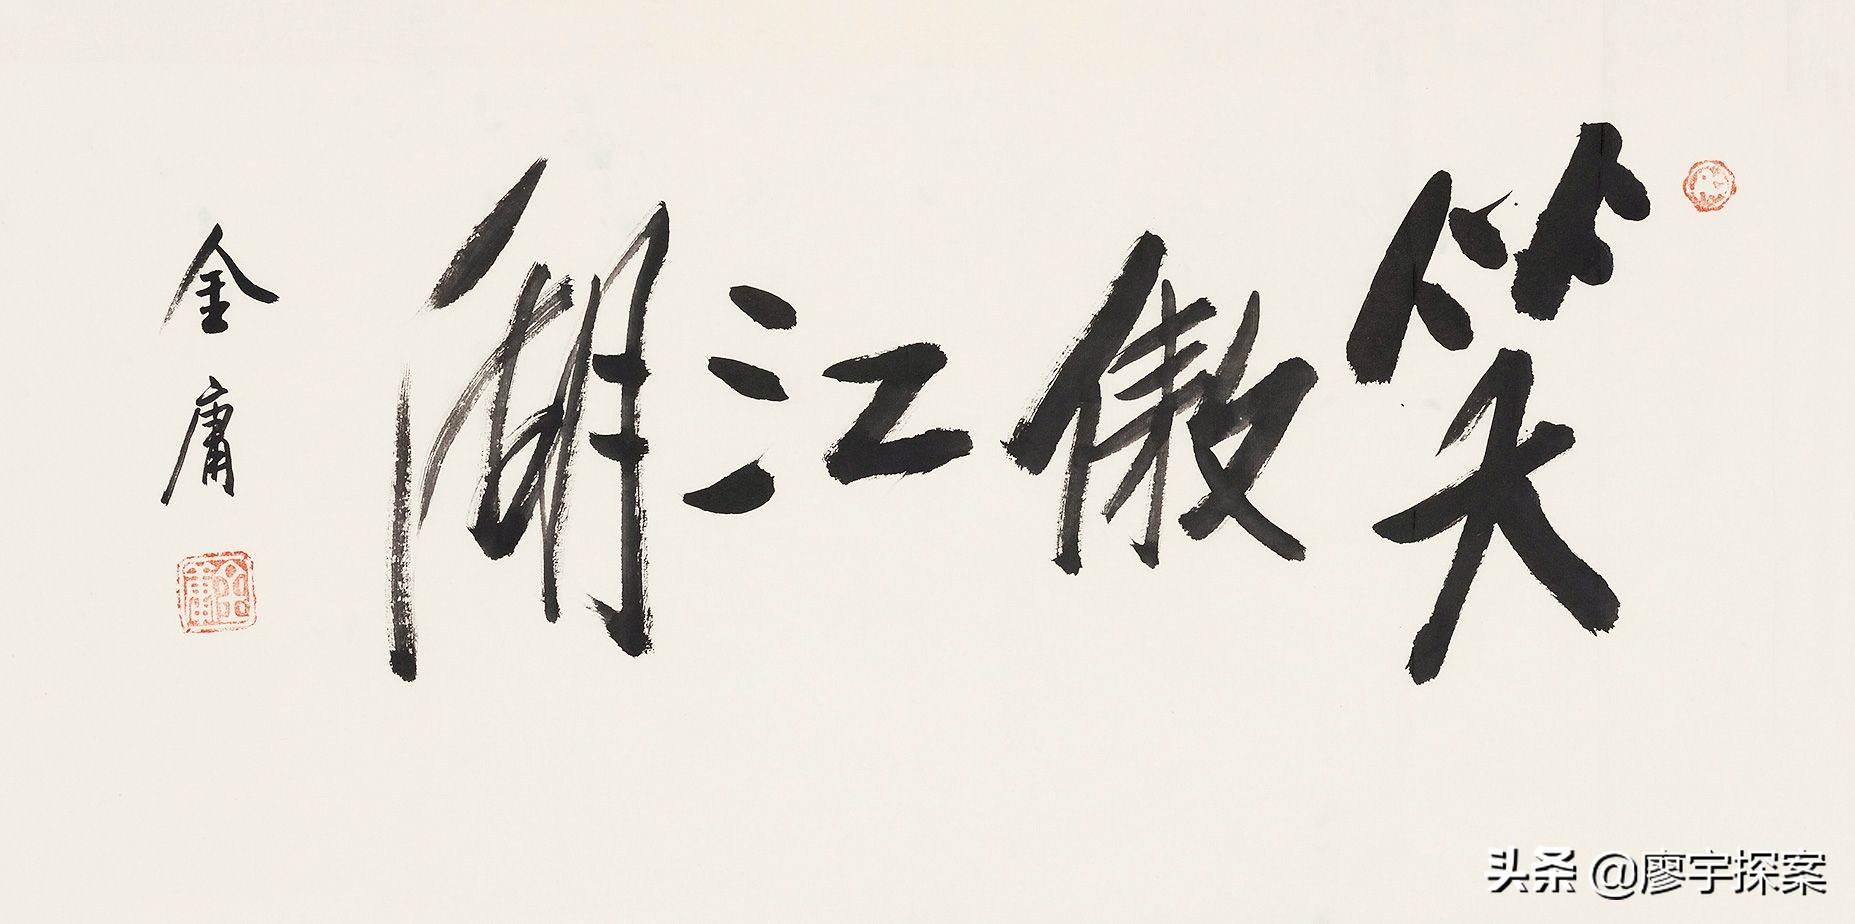 笑傲江湖
金庸
金庸
头条 @廖宇探案